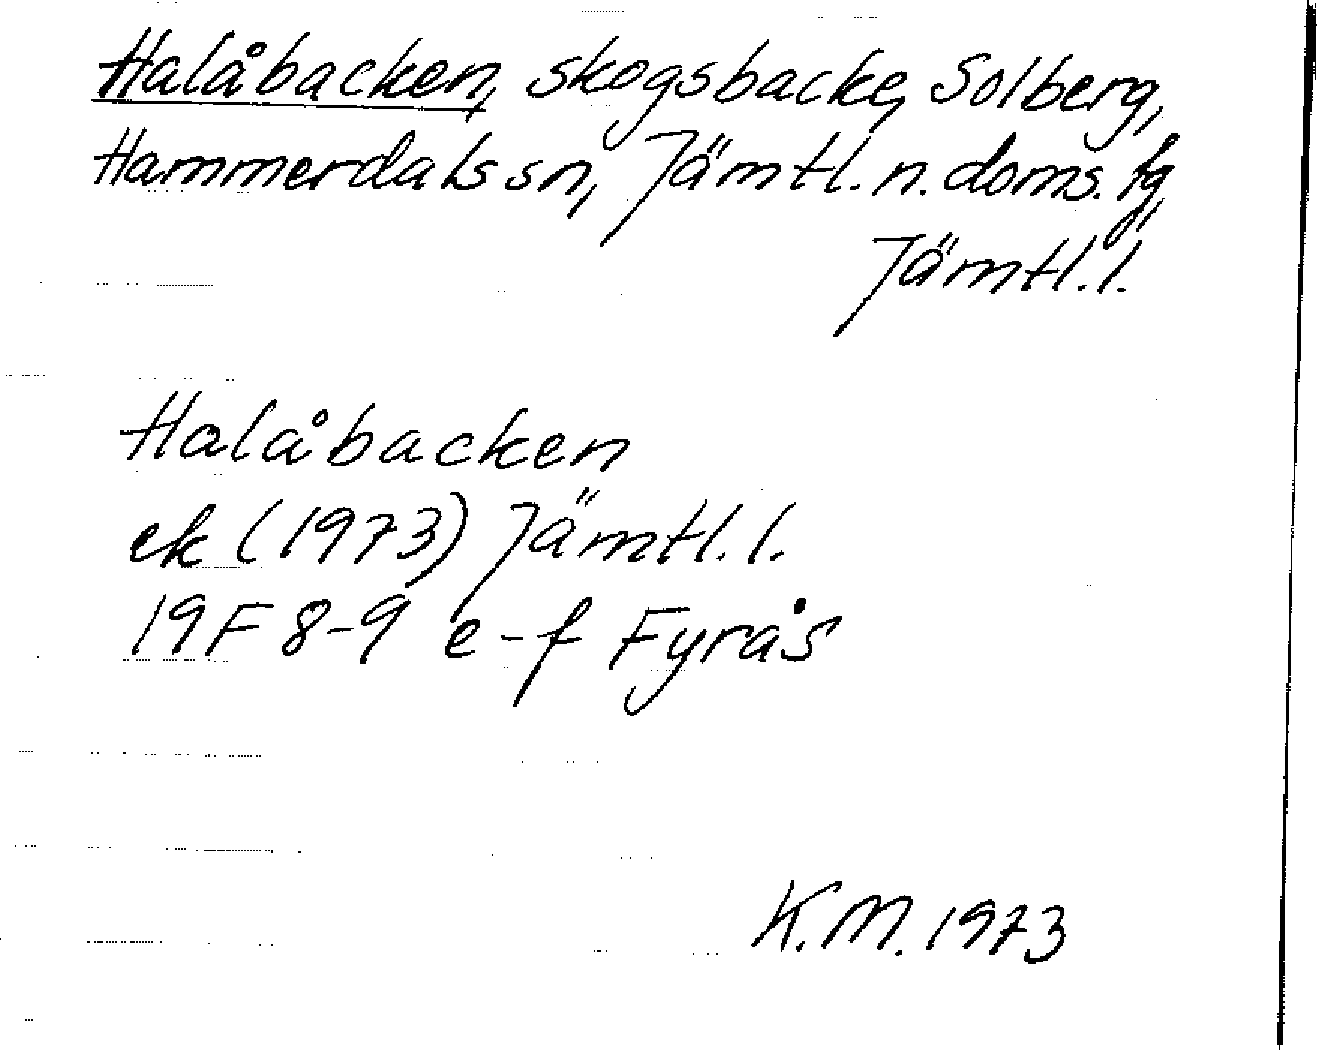 Halåbacken, skogsbacke, Solberg,
Hammerdals sn, Jämtl. n. doms. fg,
Jämtl. l.
Halåbacken
ek (1973) Jämtl. l.
19F 8-9 e-f Fyrås
K.M. 1973